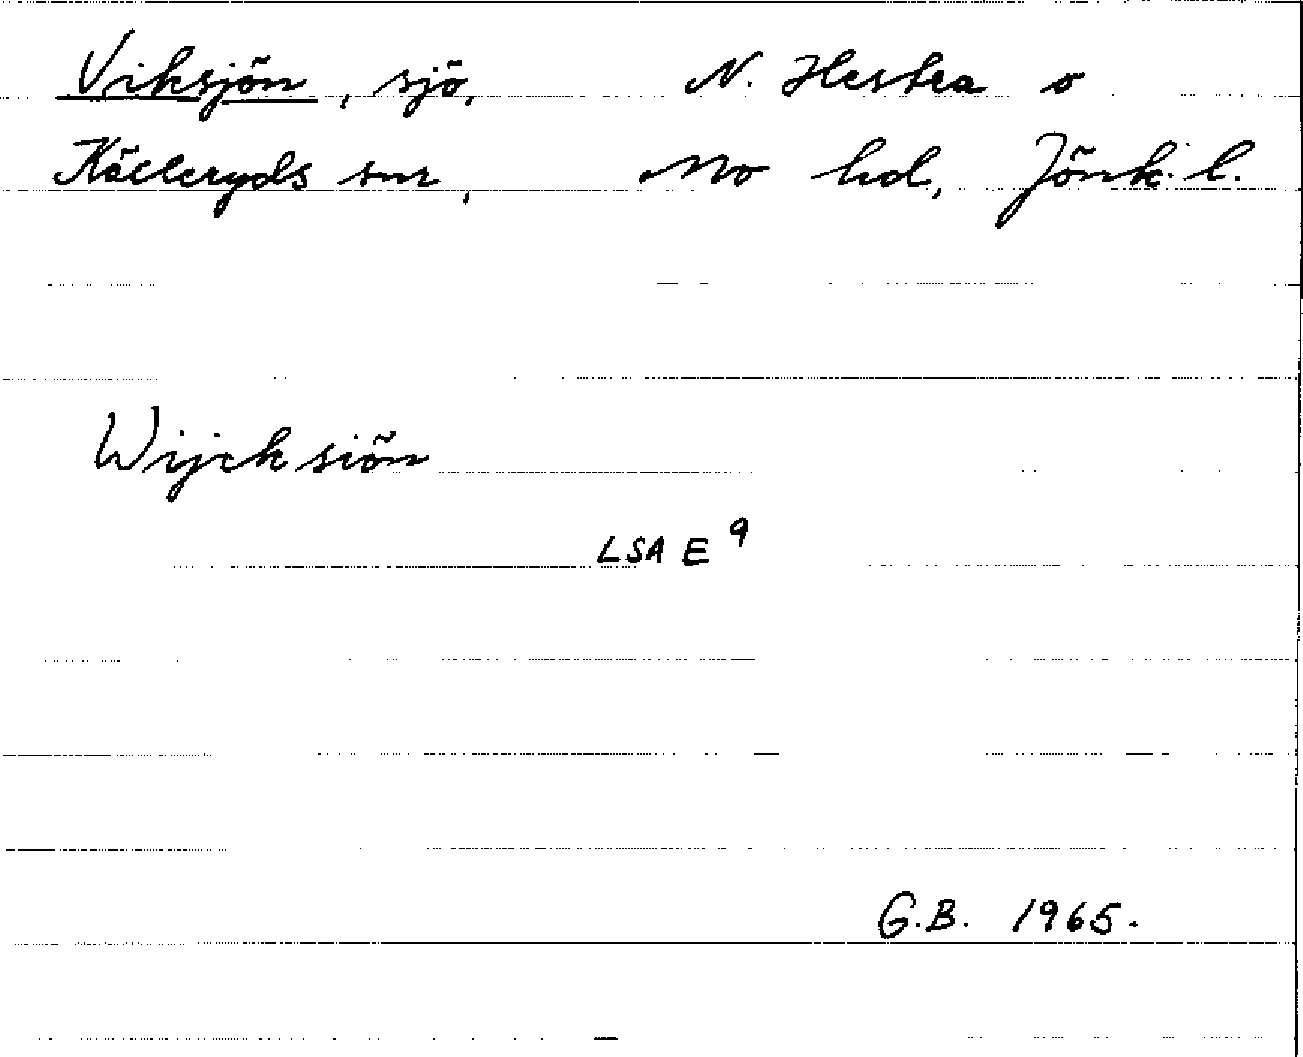 Viksjön, sjö, N. Hestra o
Källeryds snr, Mo hd, Jönk. l.
Wijcksiön
LSA E 9
G.B. 1965.